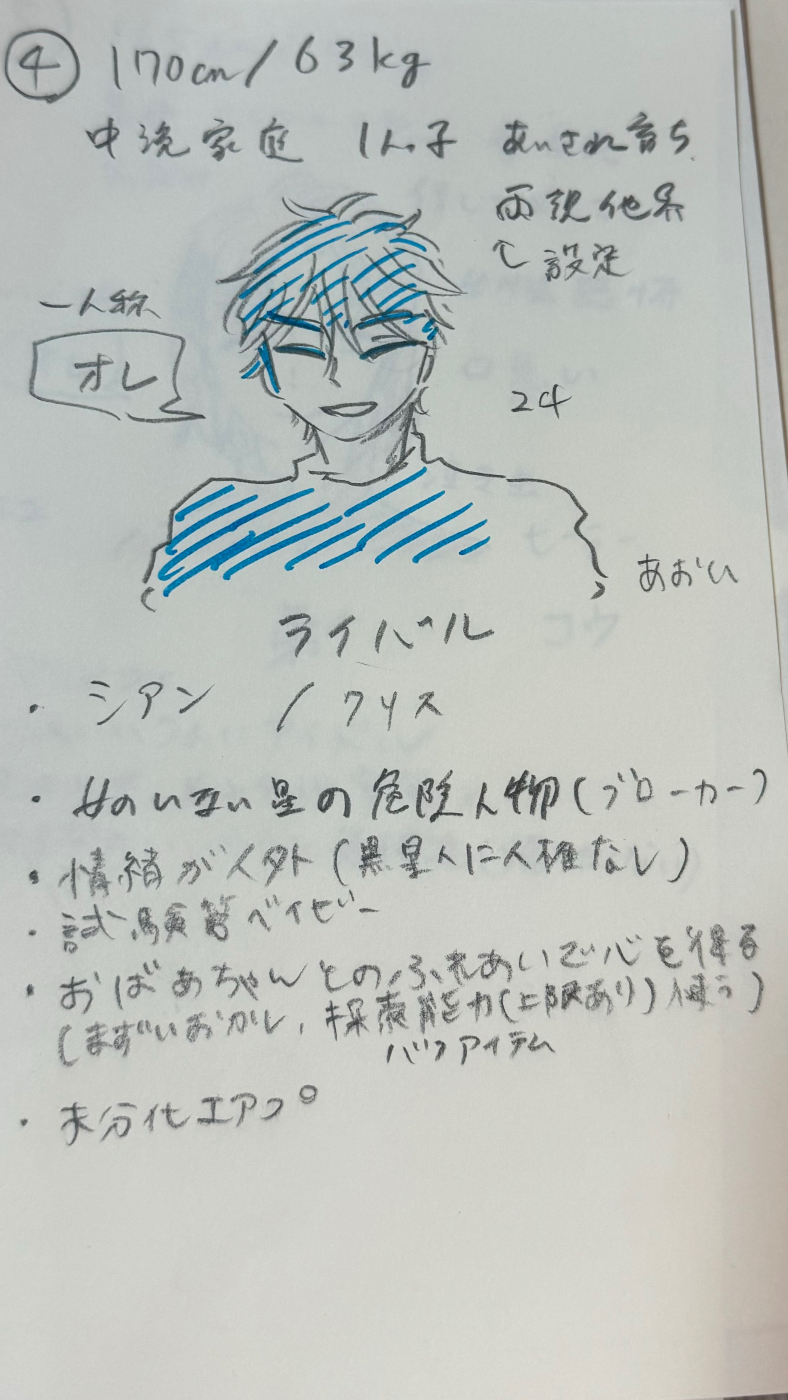 ④ 170cm/63kg
中流家庭 1人っ子 あいされ育ち
両親他界
↑設定
一人称
オレ
24
あおい
ライバル
・シアン / クリス
・女のいない星の危険人物(ブローカー)
・情緒が人外(異星人に人権なし)
・試験管ベイビー
・おばあちゃんとのふれあいで心を得る
(まずいおかし、探索能力(上限あり)使う)
バフアイテム
・未分化エアプ